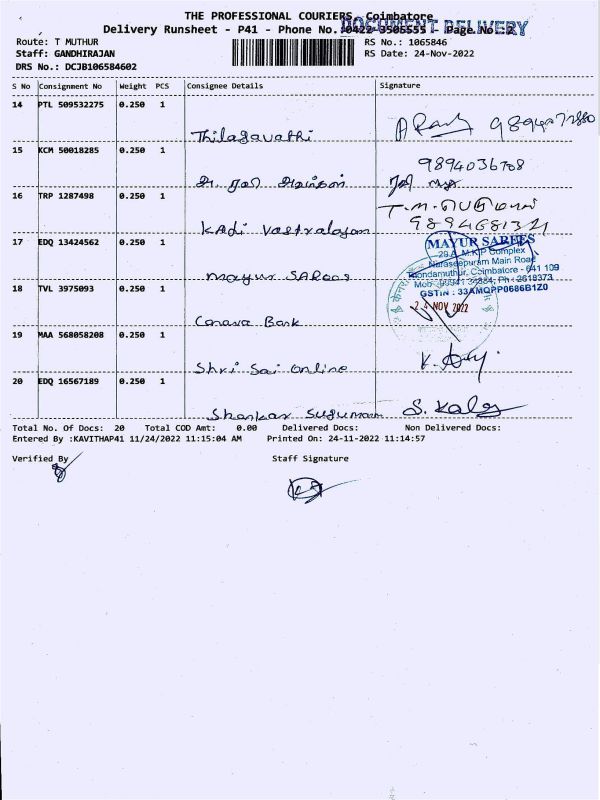 THE PROFESSIONAL COURIERS, Coimbatore
DOCUMENT DELIVERY
Delivery Runsheet - P41 - Phone No.:0422-3505555 - Page No.:2
Route: T MUTHUR RS No.: 1065846
Staff: GANDHIRAJAN RS Date: 24-Nov-2022
DRS No.: DCJB106584602
S No Consignment No Weight PCS Consignee Details Signature
14 PTL 509532275 0.250 1
Thilagavathi
15 KCM 50018285 0.250 1
9894036708
16 TRP 1287498 0.250 1
T.M.பெருமாள்
Kadi Vastralayam
17 EDQ 13424562 0.250 1
MAYUR SAREES
29 A, M.K.P Complex
Naraseepuram Main Road
Thondamuthur, Coimbatore - 641 109
GSTIN : 33AMQPP0686B1Z0
Mayur Sarees
18 TVL 3975093 0.250 1
24 NOV 2022
Canara Bank
19 MAA 568058208 0.250 1
Shri Sai Online
20 EDQ 16567189 0.250 1
Shankar Sugumaran
Total No. Of Docs: 20 Total COD Amt: 0.00 Delivered Docs: Non Delivered Docs:
Entered By :KAVITHAP41 11/24/2022 11:15:04 AM Printed On: 24-11-2022 11:14:57
Verified By Staff Signature